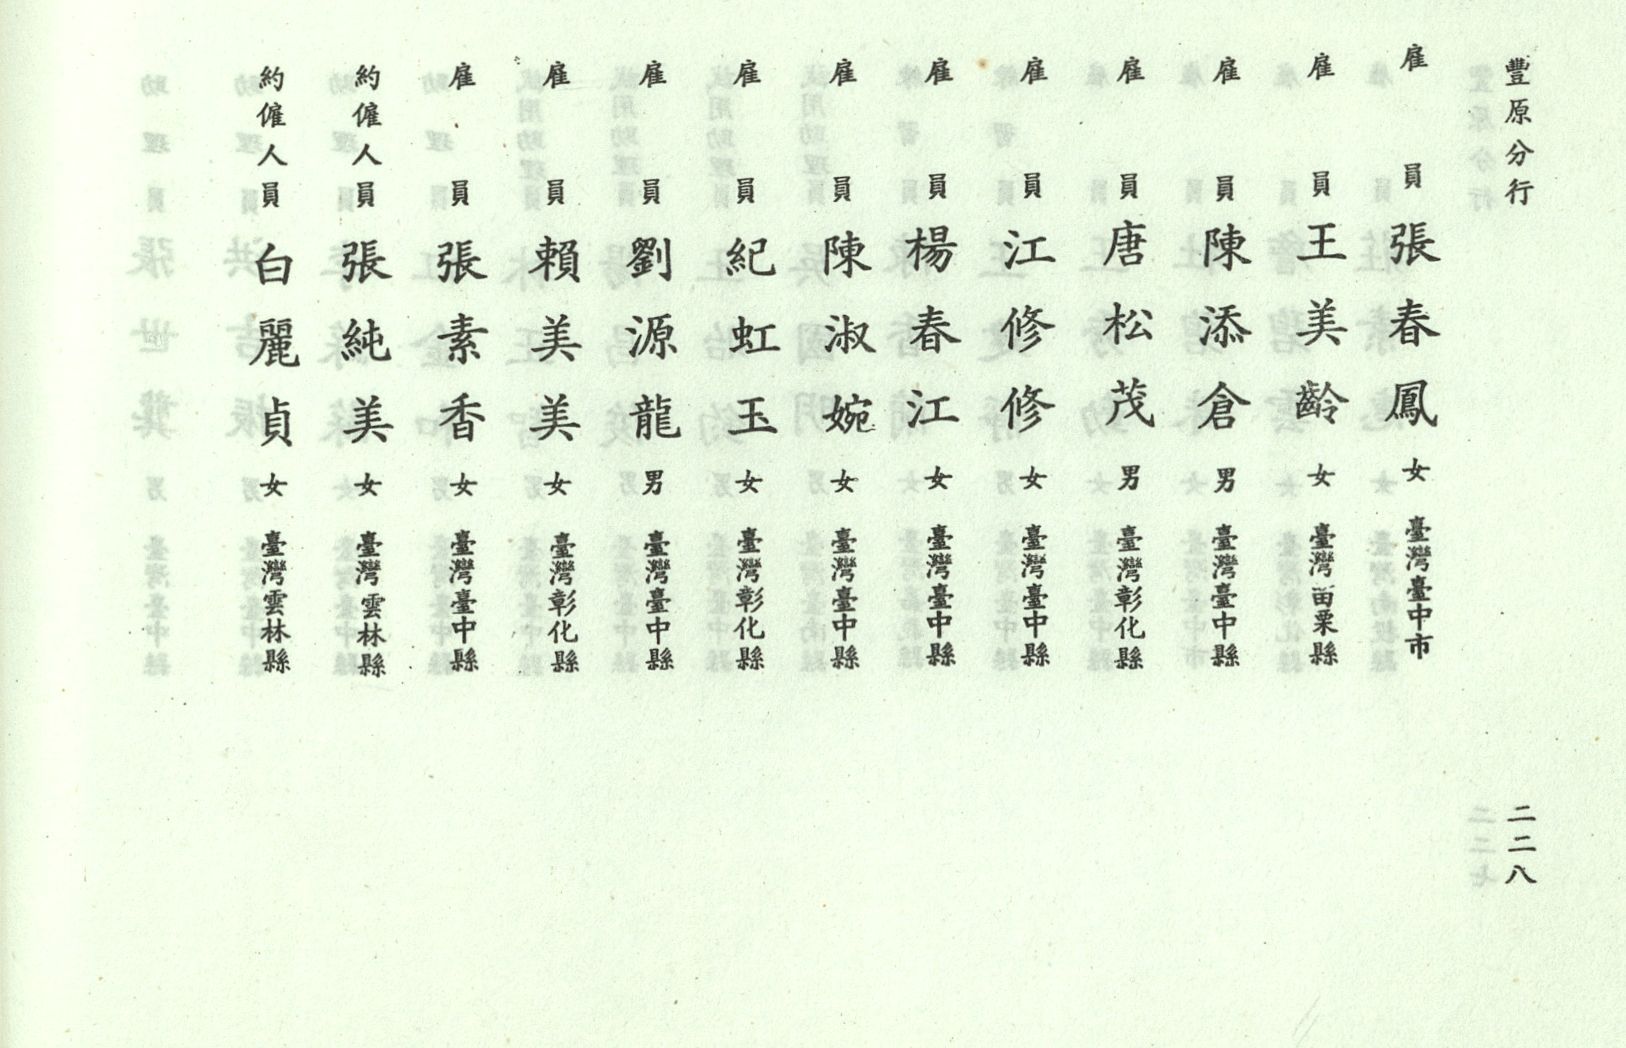 豐原分行
二二八
雇員張春鳳女臺灣臺中市
雇員王美齡女臺灣苗栗縣
雇員陳添倉男臺灣臺中縣
雇員唐松茂男臺灣彰化縣
雇員江修修女臺灣臺中縣
雇員楊春江女臺灣臺中縣
雇員陳淑婉女臺灣臺中縣
雇員紀虹玉女臺灣彰化縣
雇員劉源龍男臺灣臺中縣
雇員賴美美女臺灣彰化縣
雇員張素香女臺灣臺中縣
約僱人員張純美女臺灣雲林縣
約僱人員白麗貞女臺灣雲林縣